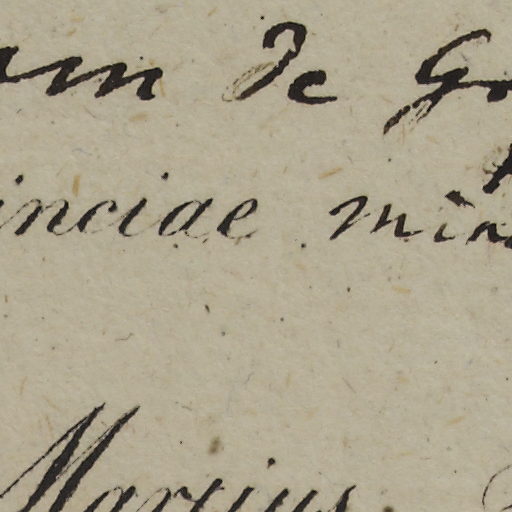 um de Go
inciae min
Martius.